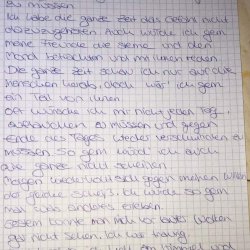 zu müssen.
Ich habe die ganze Zeit das Gefühl nicht
dazuzugehören. Auch würde ich gern
meine Freunde die Sterne und den
Mond betrachten und mit ihnen reden.
Die ganze Zeit schau ich nur auf die
Menschen herab, doch wär ich gern
ein Teil von ihnen.
Oft wünsche ich mir nicht jeden Tag
auftauchen zu müssen und gegen
Ende des Tages wieder verschwinden zu
müssen. So gern würd ich auch
die ganze Nacht scheinen.
Morgen wieder
der gleiche Scheiß. Ich würde so gern
mal was anderes erleben.
Gestern konnte man mich vor lauter Wolken
gar nicht sehen. Ich war traurig.